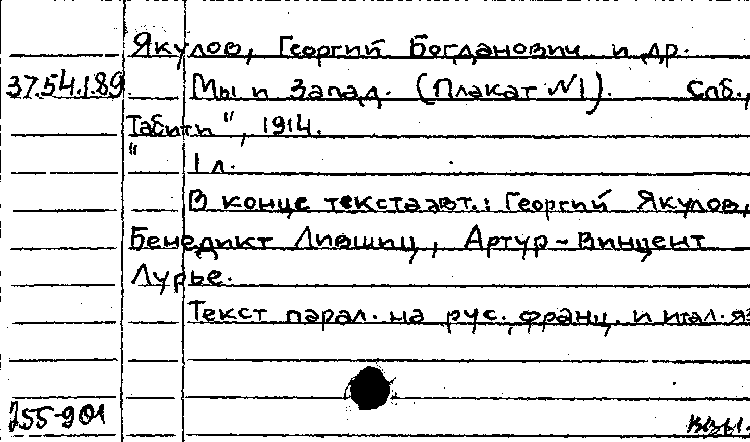 Якулов, Георгий Богданович и др.
37.54.189 Мы и Запад. (Плакат №1). Спб.,
"Табити", 1914.
1 л.
В конце текста авт.: Георгий Якулов,
Бенедикт Лившиц, Артур-Винцент
Лурье.
Текст парал. на рус. франц. и итал. яз
255-901